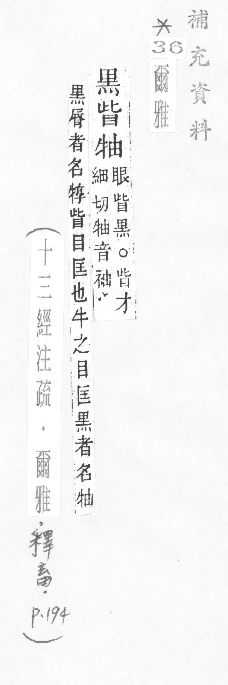 補充資料
*36爾雅
黑眥牰
眼眥黑。眥才
細切牰音袖.
黑脣者名犉眥目匡也牛之目匡黑者名牰
（十三經注疏．爾雅．釋畜．P.194）